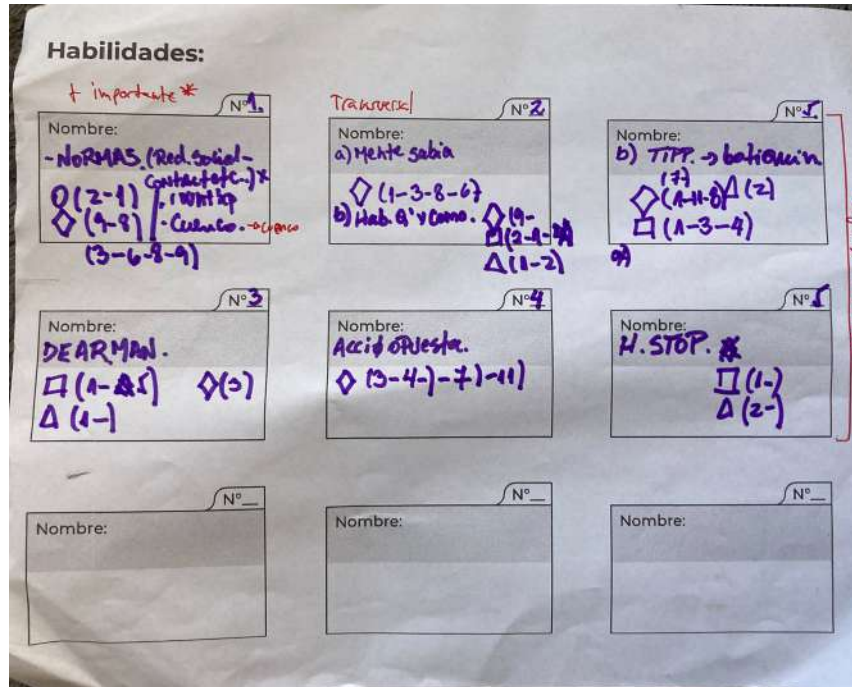 Habilidades:
+ importante *
Nº 1.
Nombre:
- NORMAS. (Red. Social -
Contacto etc..) *
(2-1)
(9-8)
- Cuenco.
(3-6-8-9)
Transversal
Nº 2
Nombre:
a) Mente sabia
(1-3-8-6)
b) Hab. Q' y Como.
(9-
(1-2)
Nº 5.
Nombre:
b) TIPP. →
(7)
(2)
(1-3-4)
Nº 3
Nombre:
DEARMAN.
(3)
(1-)
Nº 4
Nombre:
Acció opuesta.
(3-4-)-7)-11)
Nº 5
Nombre:
H. STOP. *
(1-)
(2-)
Nº__
Nombre:
Nº__
Nombre:
Nº__
Nombre: